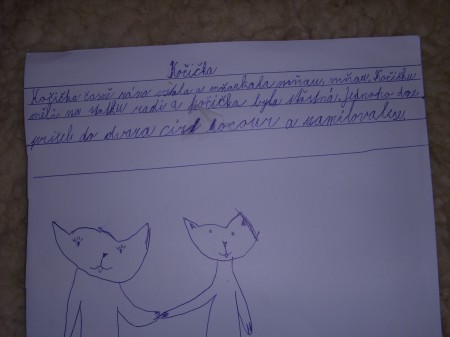 Kočička
Kočička časně rána vstala a mňoukala mňau, mňau. Kočičku
měli na statku rádi a kočička byla šťastná. Jednoho dne
přišel do dvora cizí kocour a zamilovala se